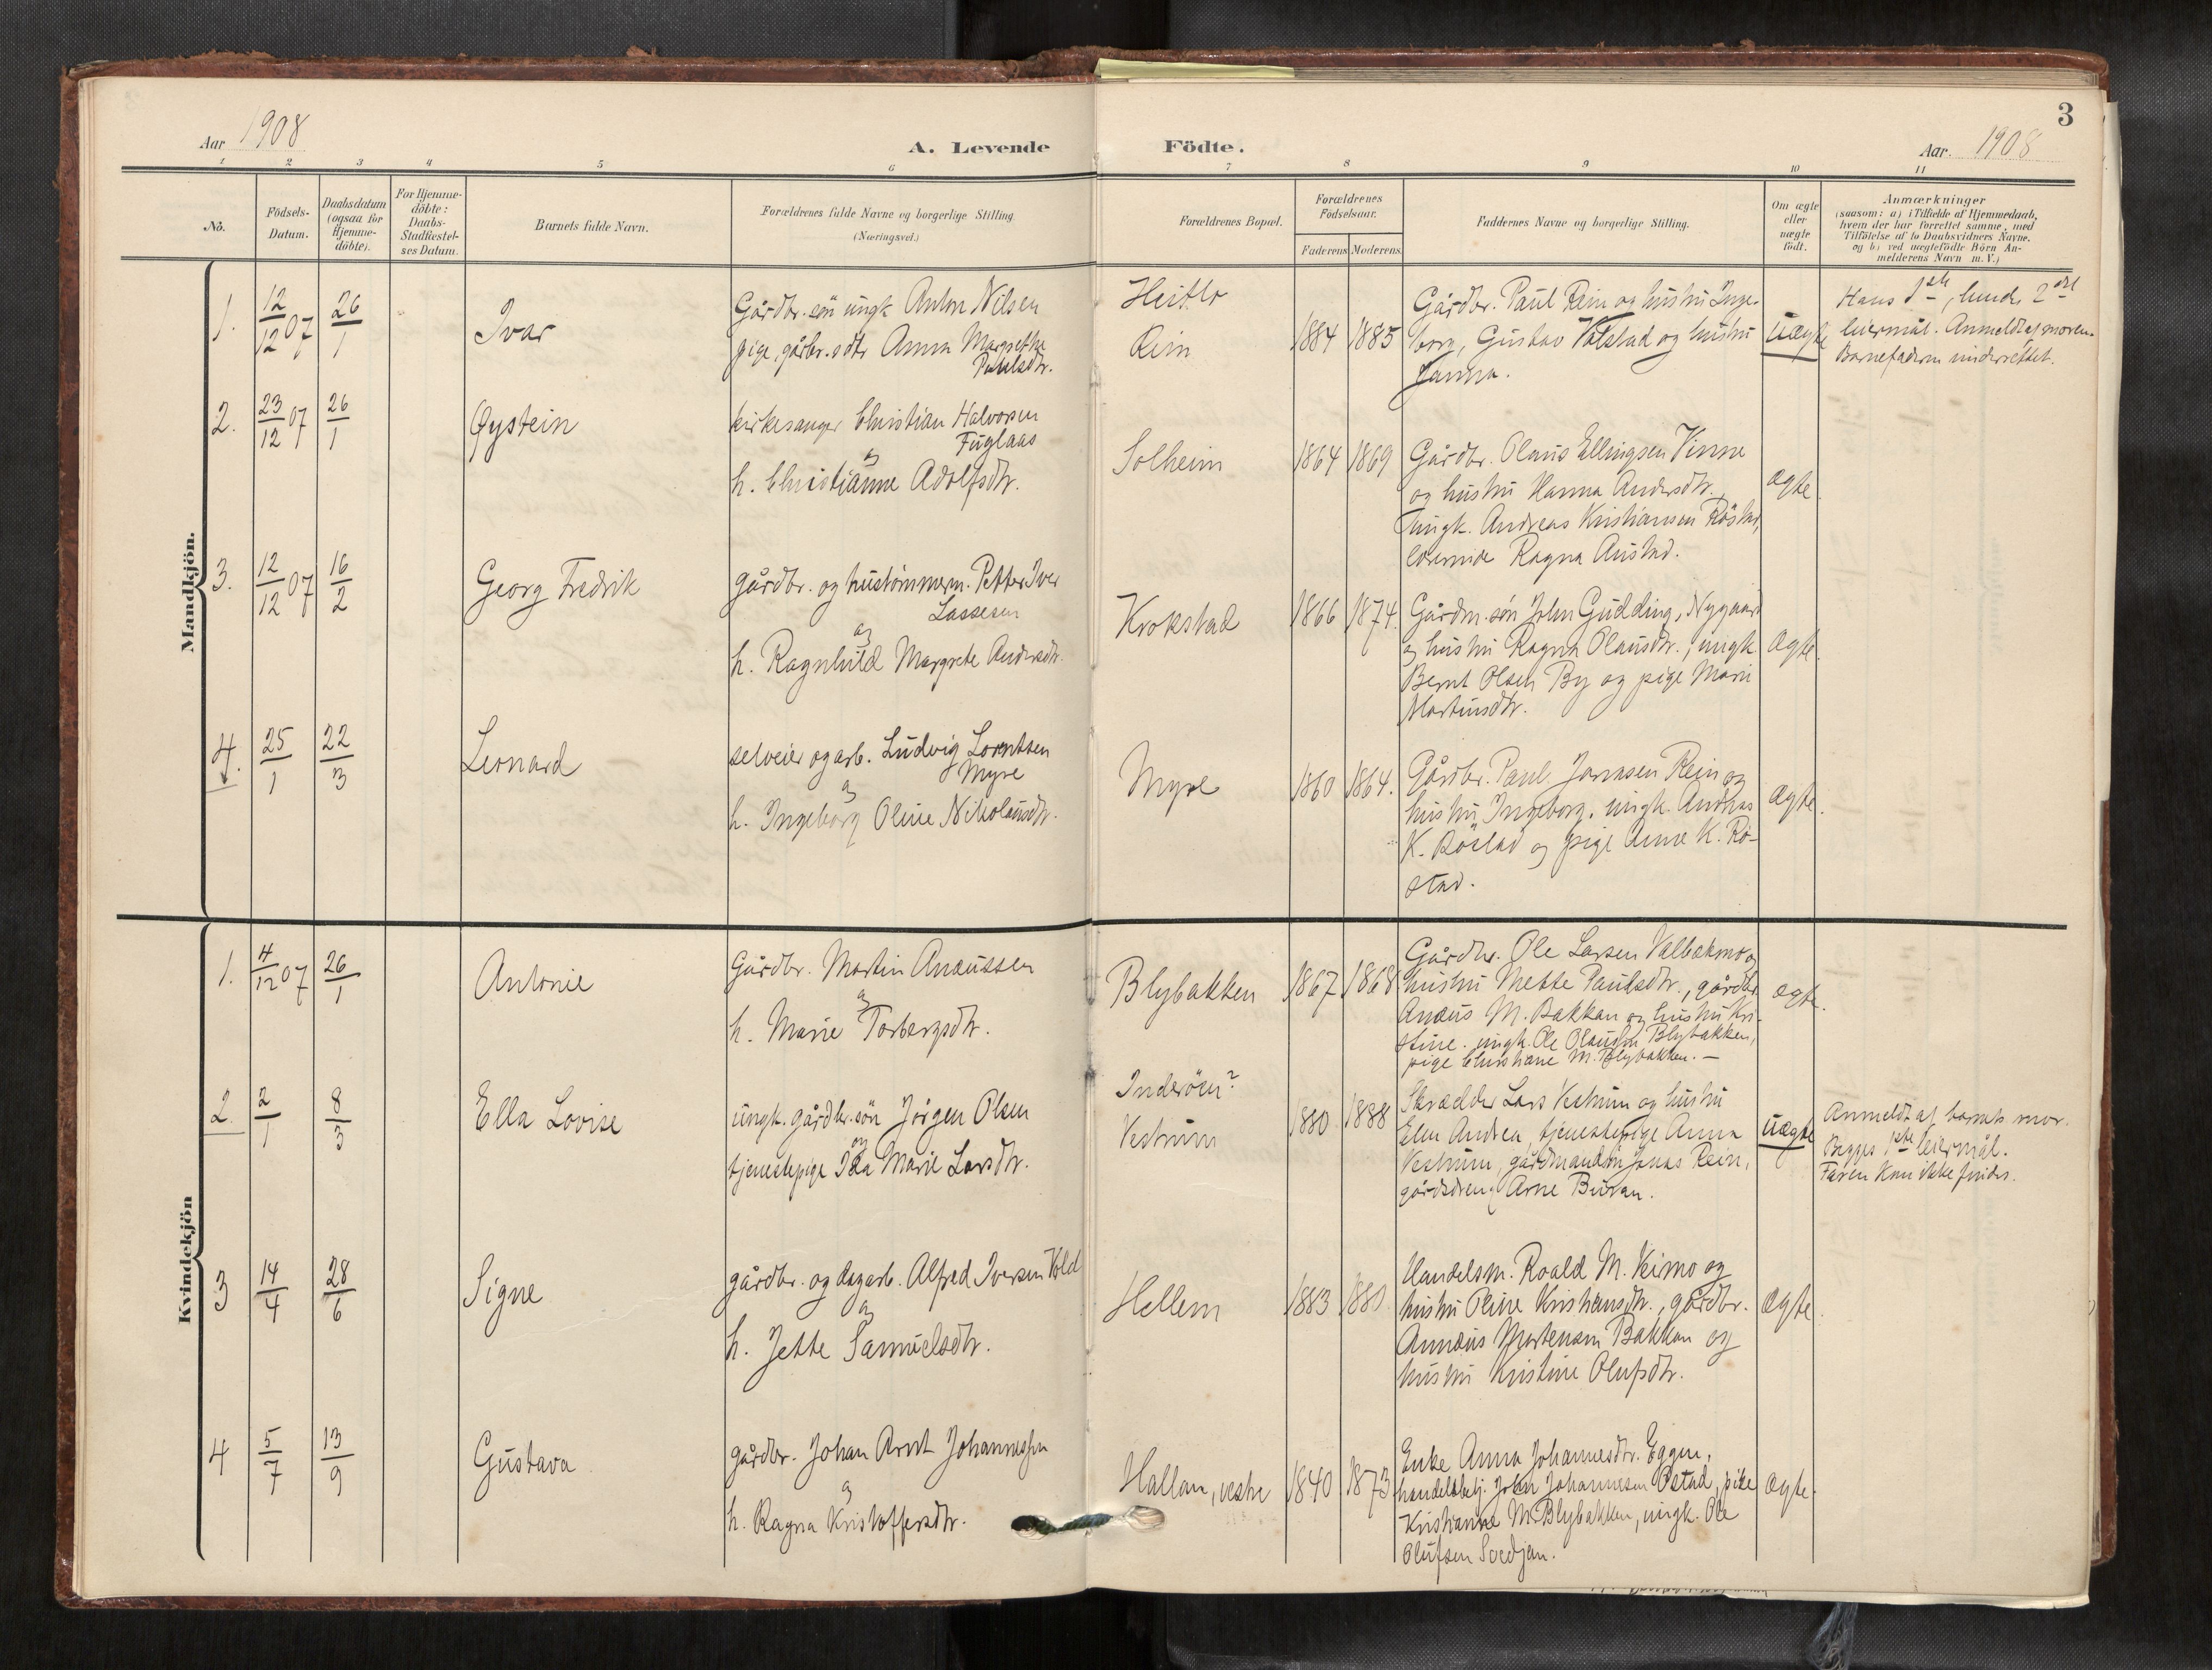 3
Aar 1908
A. Levende Födte.
Aar. 1908
1 2 3 4 5 6 7 8 9 10 11
No.
Födsels-
Datum.
Daabsdatum
(ogsaa for
Hjemme-
döbte).
For Hjemme-
döbte:
Daabs-
Stadfæstel-
ses Datum.
Barnets fulde Navn.
Forældrenes fulde Navne og borgerlige Stilling
(Næringsvei.)
Forældrenes Bopæl.
Forældrenes
Födselsaar.
Faderens Moderens
Faddernes Navne og borgerlige Stilling.
Om ægte
eller
uægte
födt.
Anmærkninger
(saasom: a) i Tilfælde af Hjemmedaab,
hvem der har forrettet samme, med
Tilföielse af to Daabsvidners Navne,
og b) ved uægtefödte Börn An-
melderens Navn m. V.)
Mandkjön.
1. 12/12 07 26/1 Ivar
Gårdbr. sön ungk Anton Nilsen
pige, gårbr.sdtr Anna Margrethe
Paulsdtr.
Heitlo
Rein
1884 1885
Gårdbr. Paul Rein og hustru Inge-
borg, Gustav Valstad og hustru
Hanna.
uægte
Hans 1ste, hendes 2det
leiermål. Anmeldt af moren.
Barnefaderen underrettet.
2. 23/12 07 26/1 Øystein
kirkesanger Christian Halvorsen
Fuglaas
og
h. Christianne Adolfsdtr.
Solheim
1864 1869
Gårdbr. Olaus Ellingsen Vinne
og hustru Hanna Andersdtr.,
ungk. Andreas Kristiansen Röstad,
lærerinde Ragna Austad.
ægte.
3. 12/12 07 16/2 Georg Fredrik
gårdbr. og hustömmerm. Petter Iver
Lassesen
og
h. Ragnhild Margrete Andersdtr.
Krokstad
1866 1874.
Gårdm.sön John Gudding, Nygaard
og hustru Ragna Olausdtr.; ungk.
Bernt Olsen By og pige Marie
Martinsdtr.
ægte.
4. 25/1 22/3 Leonard
selveier og arb. Ludvig Lorntsen
Myre
og
h. Ingeborg Oline Nikolausdtr.
Myre
1860 1864.
Gårdbr. Paul Jonasen Rein og
hustru Ingeborg, ungk. Andreas
K. Röstad og pige Anne K. Rö-
stad.
ægte.
Kvindekjön
1. 4/12 07 26/1 Antonie
Gårdbr. Martin Anæussen
og
h. Marie Torbergsdtr.
Blybakken
1867 1868
Gårdbr. Ole Larsen Valbakmo og
hustru Mette Paulsdtr., gårdbr.
Anæus M. Bakkan og hustru Kri-
stine. ungk. Ole Olausen Blybakken,
pige Christiane M. Blybakken. —
ægte.
2. 2/1 8/3 Ella Lovise
ungk. gårdbr. sön Jörgen Olsen
og
tjenestepige Ida Marie Larsdtr.
Inderöen?
Vestrum
1880 1888
Skrædder Lars Vestrum og hustru
Elen Andrea, tjenestepige Anna
Vestrum, gårdmandsön Jonas Rein,
gårdsdreng Arne Buran.
uægte
Anmeldt af barnets mor.
Begges 1ste leiermål.
Faren kan ikke findes.
3 14/4 28/6 Signe
gårdbr. og dagarb. Alfred Iversen Vold
og
h. Jette Samuelsdtr.
Hellem
1883 1881
Handelsm. Roald M. Veimo og
hustru Oline Kristiansdtr., gårdbr.
Annæus Mortensen Bakkan og
hustru Kristine Olufsdtr.
ægte.
4 5/7 13/9 Gustava
gårdbr. Johan Arnt Johannessen
og
h. Ragna Kristoffersdtr.
Hallan, vestre
1840 1873
Enke Anna Johannesdtr. Eggen,
handelsbetj. John Johannesen Östad, pike
Kristianne M. Blybakken, ungk. Ole
Olufsen Svedjan.
ægte.